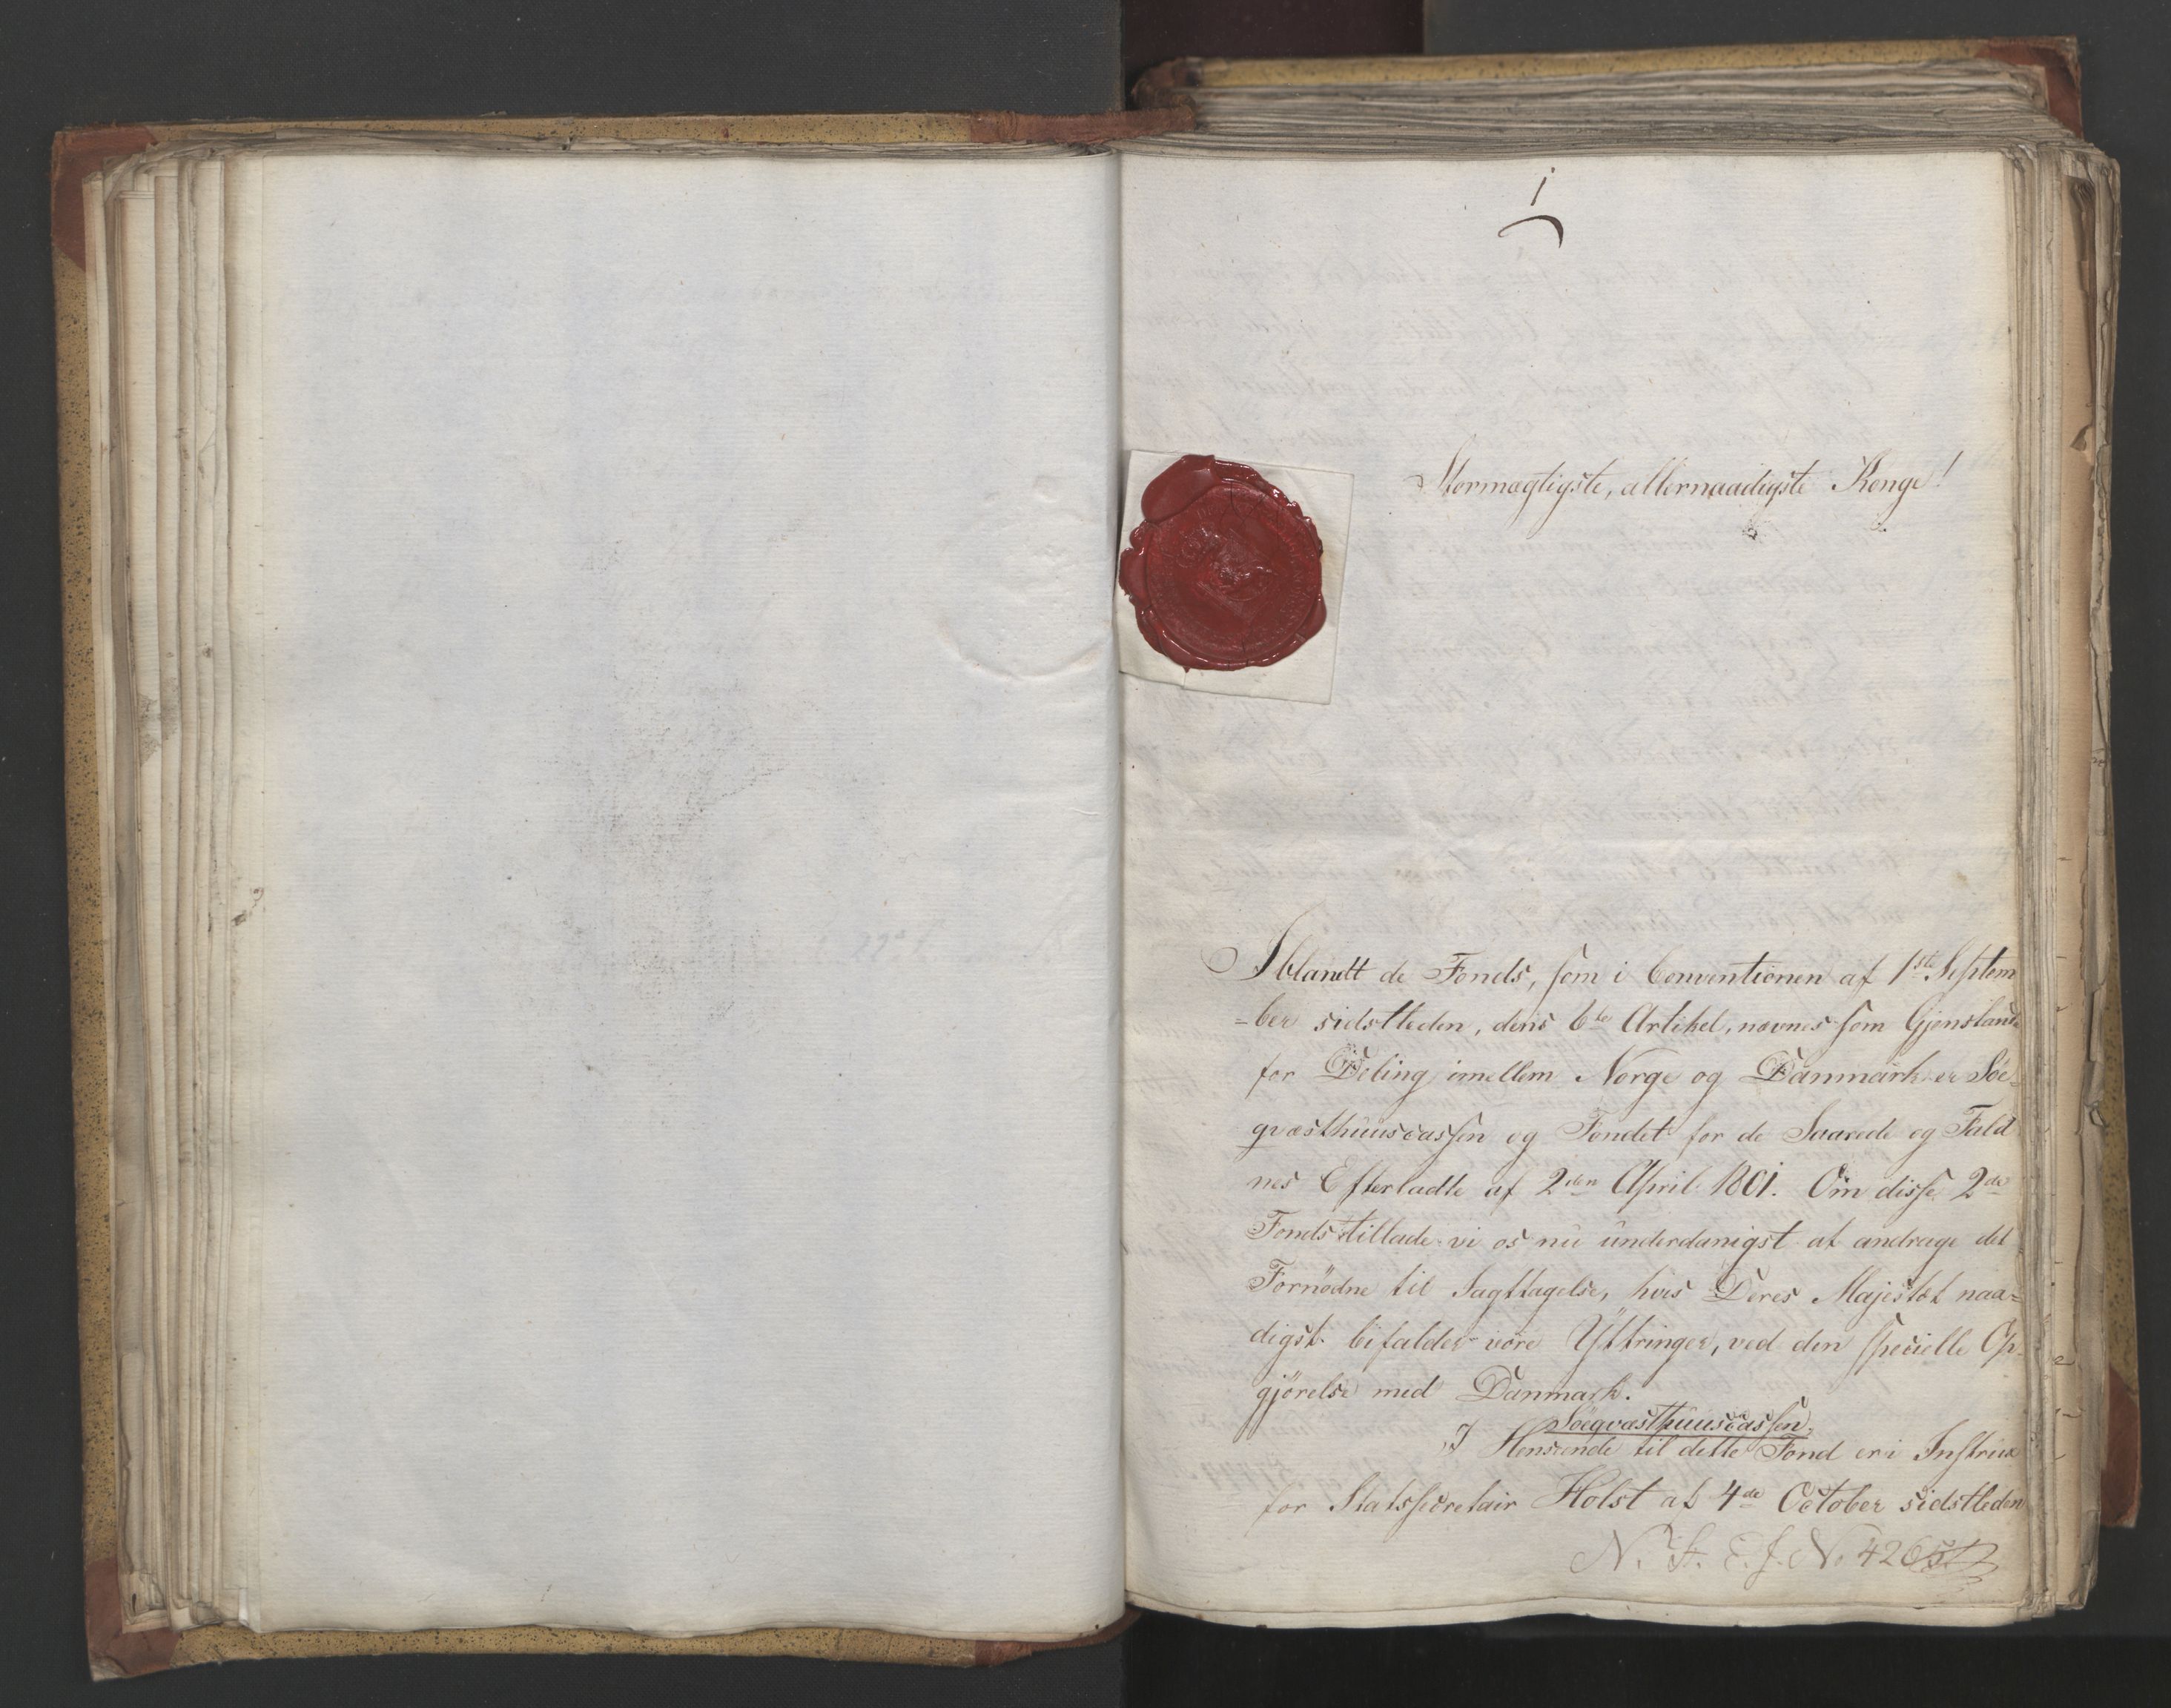 1
Stormægtigste, allernaadigste Konge!
Iblandt de Fonds, som i Conventionen af 1ste Septem
-ber sidstleden, dens 6te Artikel, nævnes som Gjenstand
for Deling imellem Norge og Danmark er Söe-
qvæsthuuscassen og Fondet for de Saarede og Fald
nes Efterladte af 2den April 1801. Om disse 2de
Fonds tillade vi os nu underdanigst at andrage det
Fornödne til Iagttagelse, hvis Deres Majestæt naa-
digst bifalder vore Yttringer, ved den specielle Op-
gjörelse med Danmark.
Söeqvæsthuuscassen.
I Henseende til dette Fond er i Instrux
for Statssecretair Holst af 4de October sidstleden
N. St. E. J. No 426